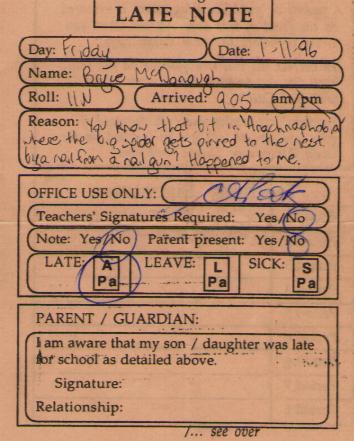 LATE NOTE
Day: Friday Date: 1-11-96
Name: Bryce McDonough
Roll: 11N Arrived: 9.05 am/pm
Reason: You know that bit in 'Arachnaphobia'
where the big spider gets pinned to the nest
by a nail from a nail gun? Happened to me.
OFFICE USE ONLY:
Teachers' Signatures Required: Yes/No
Note: Yes/No Parent present: Yes/No
LATE: A Pa LEAVE: L Pa SICK: S Pa
PARENT / GUARDIAN:
I am aware that my son / daughter was late
for school as detailed above.
Signature:
Relationship:
/... see over